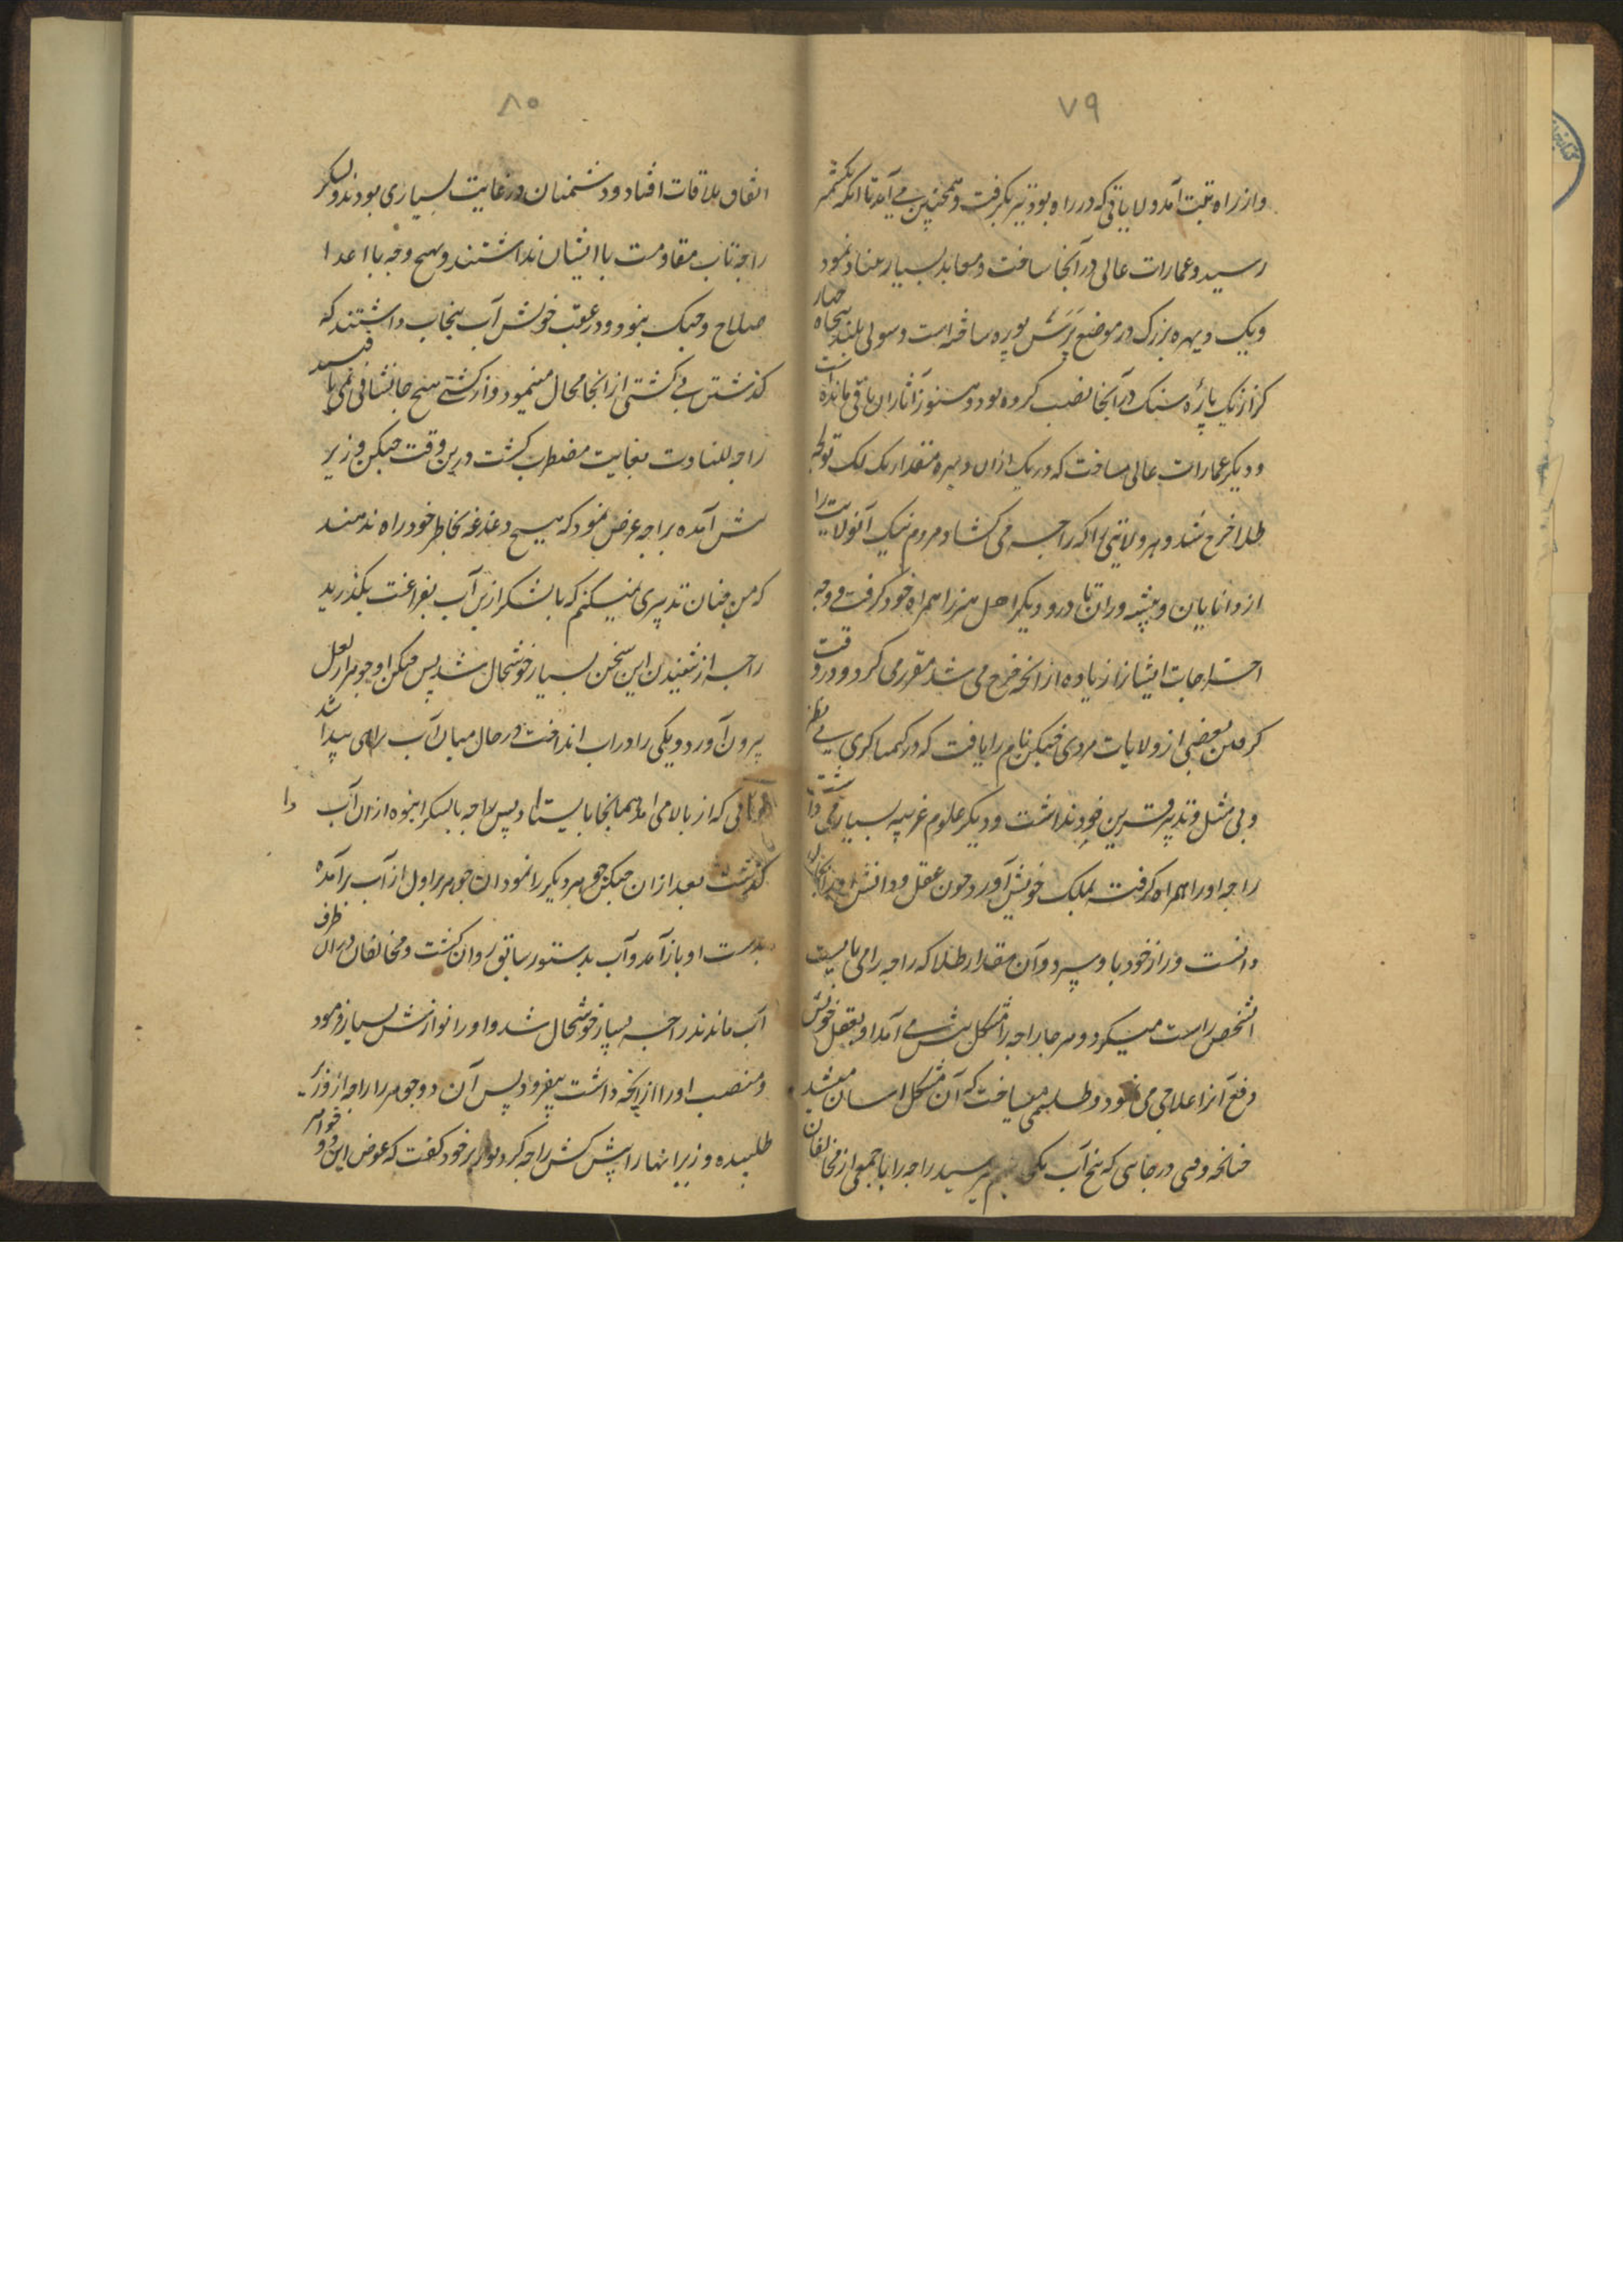 ۷۹
و از راه تبت آمد ولایاتی که در راه بود نیز بگرفت و همچنین می آمد تا آنکه بکشمیر
رسید و عمارات عالی در آنجا ساخت و معابد بسیار بنیاد نمود
و یک ویهره بزرگ در موضع پَرَسْ پوره ساخته است و سولی بلند پنجاه چهار
کز از یک پارهٔ سنک در آنجا نصب کرده بود و هنوز آثار ان باقی مانده است
و دیکر عمارات عالی ساخت که در یک ازان ویهره مقدار یک لک توله
طلا خرج شد و هر ولایتی را که راجه می کشاد مردم نیک آنولایت را
از دانایان و پیشه وران نادر و دیکر اهل هنر را همراه خود کرفتی و وجه
اخراجات ایشانرا زیاده از انچه خرج می شد مقرر می کرد و در وقت
کرفتن بعضی از ولایات مردی چنکن نام را یافت که در کیمیا کری بی نظیر
و بی مثل و تدبیر قرین خود نداشت و دیکر علوم غریبه بسیار می دانست
راجه او را همراه کرفته بملک خویش آورد و چون عقل و دانش او
دانست و راز خود باو سپرد و آن مقدار طلا که راجه را می بایست
آنشخص راست میکرد و هر جا راجه را مشکل پیش می آمد او بعقل خویش
دفع آنرا علاجی می نمود و طلسمی میساخت که آن مشکل اسان میشد
چنانچه وقتی در جایی که پنج آب بهم میرسید راجه را با جمعی از مخالفان
۸۰
اتفاق ملاقات افتاد و دشمنان در غایت بسیاری بودند و لشکر
راجه تاب مقاومت با ایشان نداشتند و بهیچ وجه با اعدا
صلاح جنک نبود و در عقب خویش آب پنجاب داشتند که
کذشتن بی کشتی از انجا محال مینمود و از کشتی هیچ جا نشانی نمی یافتند
راجه للتادت بغایت مضطرب کشت درین وقت چنکن وزیر
پیش آمده براجه عرض نمود که هیچ دغدغه بخاطر خود راه ندهند
که من چنان تدبیری میکنم که با لشکر ازین آب بفراغت بکذرید
راجه از شنیدن این سخن بسیار خوشحال شد پس چنکن دو جوهر از بغل
بیرون آورد و یکی را در اب انداخت در حال میان آب راهی پیدا شد
آبی که از بالا می آمد همانجا بایستاد پس راجه با لشکر انبوه ازان آب
کذشت بعد ازان چنکن جوهر دیکر را نمود ان جوهر اول از آب برآمده
بدست او باز آمد و آب بدستور سابق روان کشت و مخالفان دران طرف
آب ماندند راجه بسیار خوشحال شد و او را نوازش بسیار فرمود
و منصب او را از انچه داشت بیفزود پس آن دو جوهر را راجه از وزیر
طلبیده وزیر اینها را پیش کش راجه کرد و وزیر خود کفت که عوض این دو جواهر